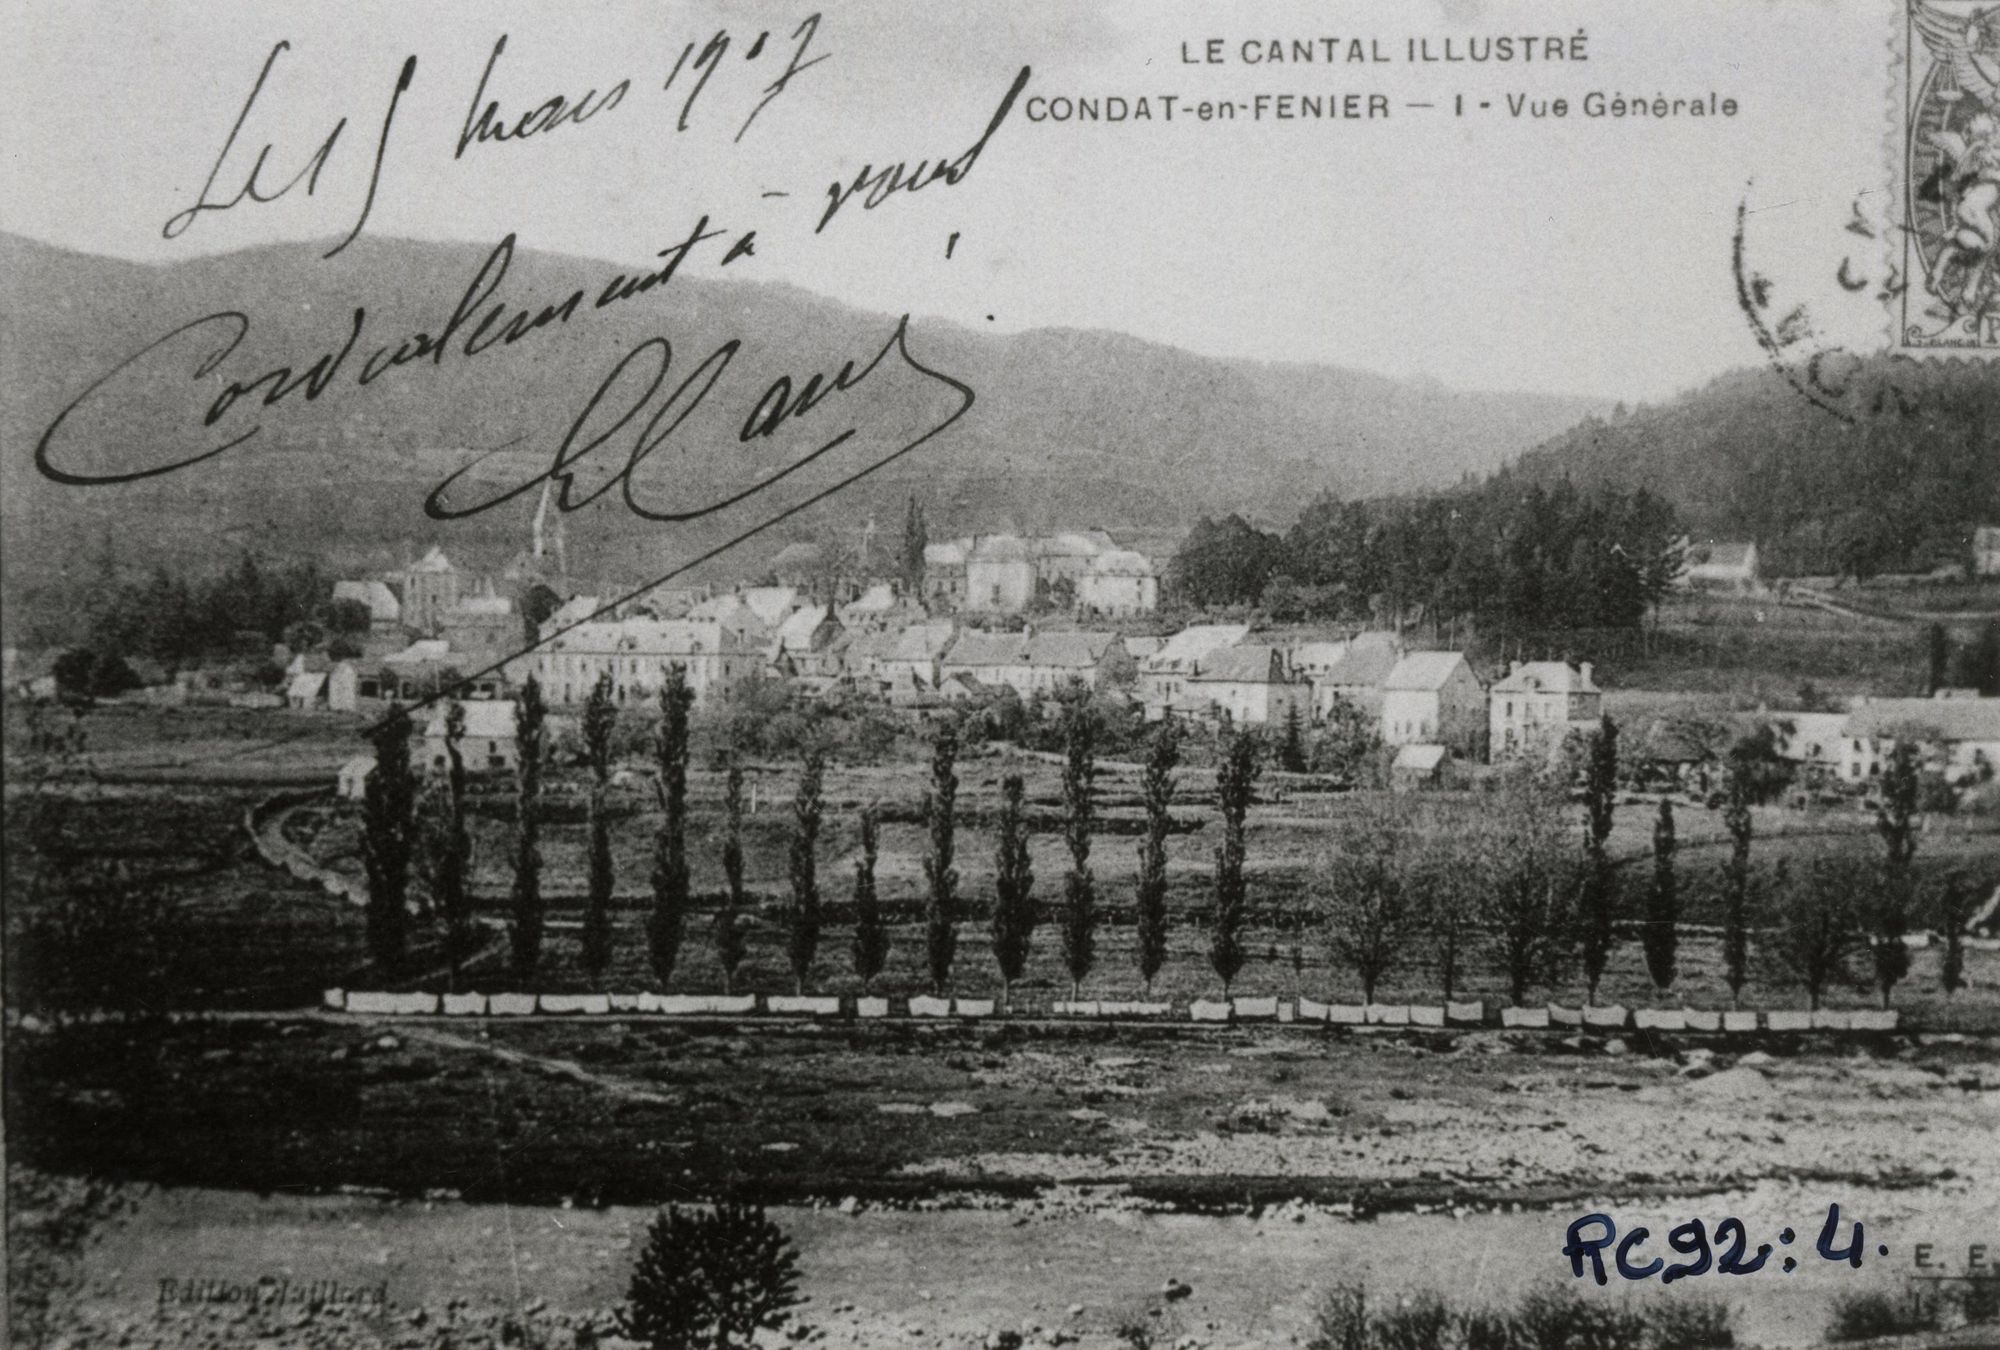 LE CANTAL ILLUSTRÉ
CONDAT-en-FENIER — 1 - Vue Générale
Le 15 mars 1907
Cordialement à vous !
RC92:4.
E. E.
Edition Juillard